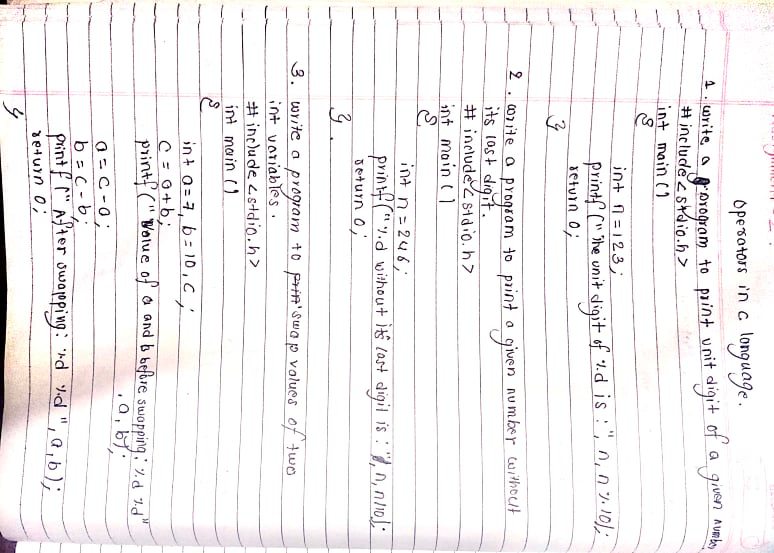 Operators in c language.
1. write a program to print unit digit of a given numbe
#include<stdio.h>
int main ()
{
int n=123;
printf("The unit digit of %d is :", n, n%10);
return 0;
}
2. write a program to print a given number without
its last digit.
# include<stdio.h>
int main ()
{
int n=246;
printf("%d without its last digit is :", n, n/10);
return 0;
}.
3. write a program to swap values of two
int variables.
#include <stdio.h>
int main ()
{
int a=7, b=10, c;
c=a+b;
printf("Value of a and b before swapping: %d %d"
,a, b);
a=c-a;
b=c-b;
printf("After swapping: %d %d", a, b);
return 0;
}